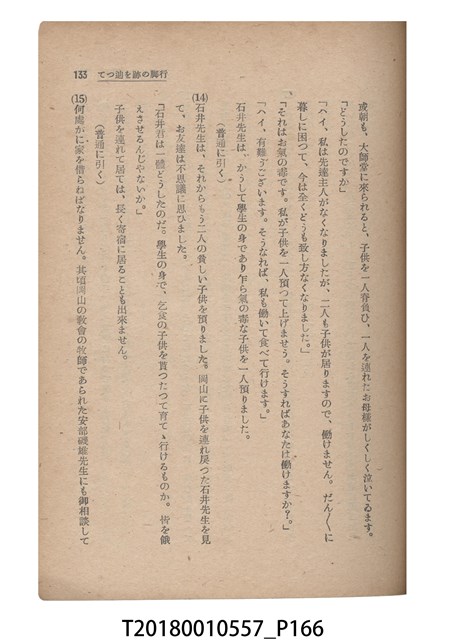 133　てつ辿を跡の脚行
或朝も、大師堂に來られると、子供を一人脊負ひ、一人を連れたお母樣がしくしく泣いてゐます。
『どうしたのですか』
『ハイ、私は先達主人がなくなりましたが、二人も子供が居りますので、働けません。だん〳〵に
暮しに困つて、今は全くどうも致し方なくなりました。』
『それはお氣の毒です。私が子供を一人預つて上げませう。そうすればあなたは働けますか？。』
『ハイ、有難うございます。そうなれば、私も働いて食べて行けます。』
石井先生は、かうして學生の身であり乍ら氣の毒な子供を一人預りました。
（普通に引く）
(14)石井先生は、それからもう二人の貧しい子供を預りました。岡山に子供を連れ戾つた石井先生を見
て、お友達は不思議に思ひました。
『石井君は一體どうしたのだ。學生の身で、乞食の子供を貰つたつて育てゝ行けるものか。皆を餓
えさせるんじやないか。』
子供を連れて居ては、長く寄宿に居ることも出來ません。
（普通に引く）
(15)何處かに家を借らねばなりません。其頃岡山の敎會の牧師であられた安部磯雄先生にも御相談して
T20180010557_P166